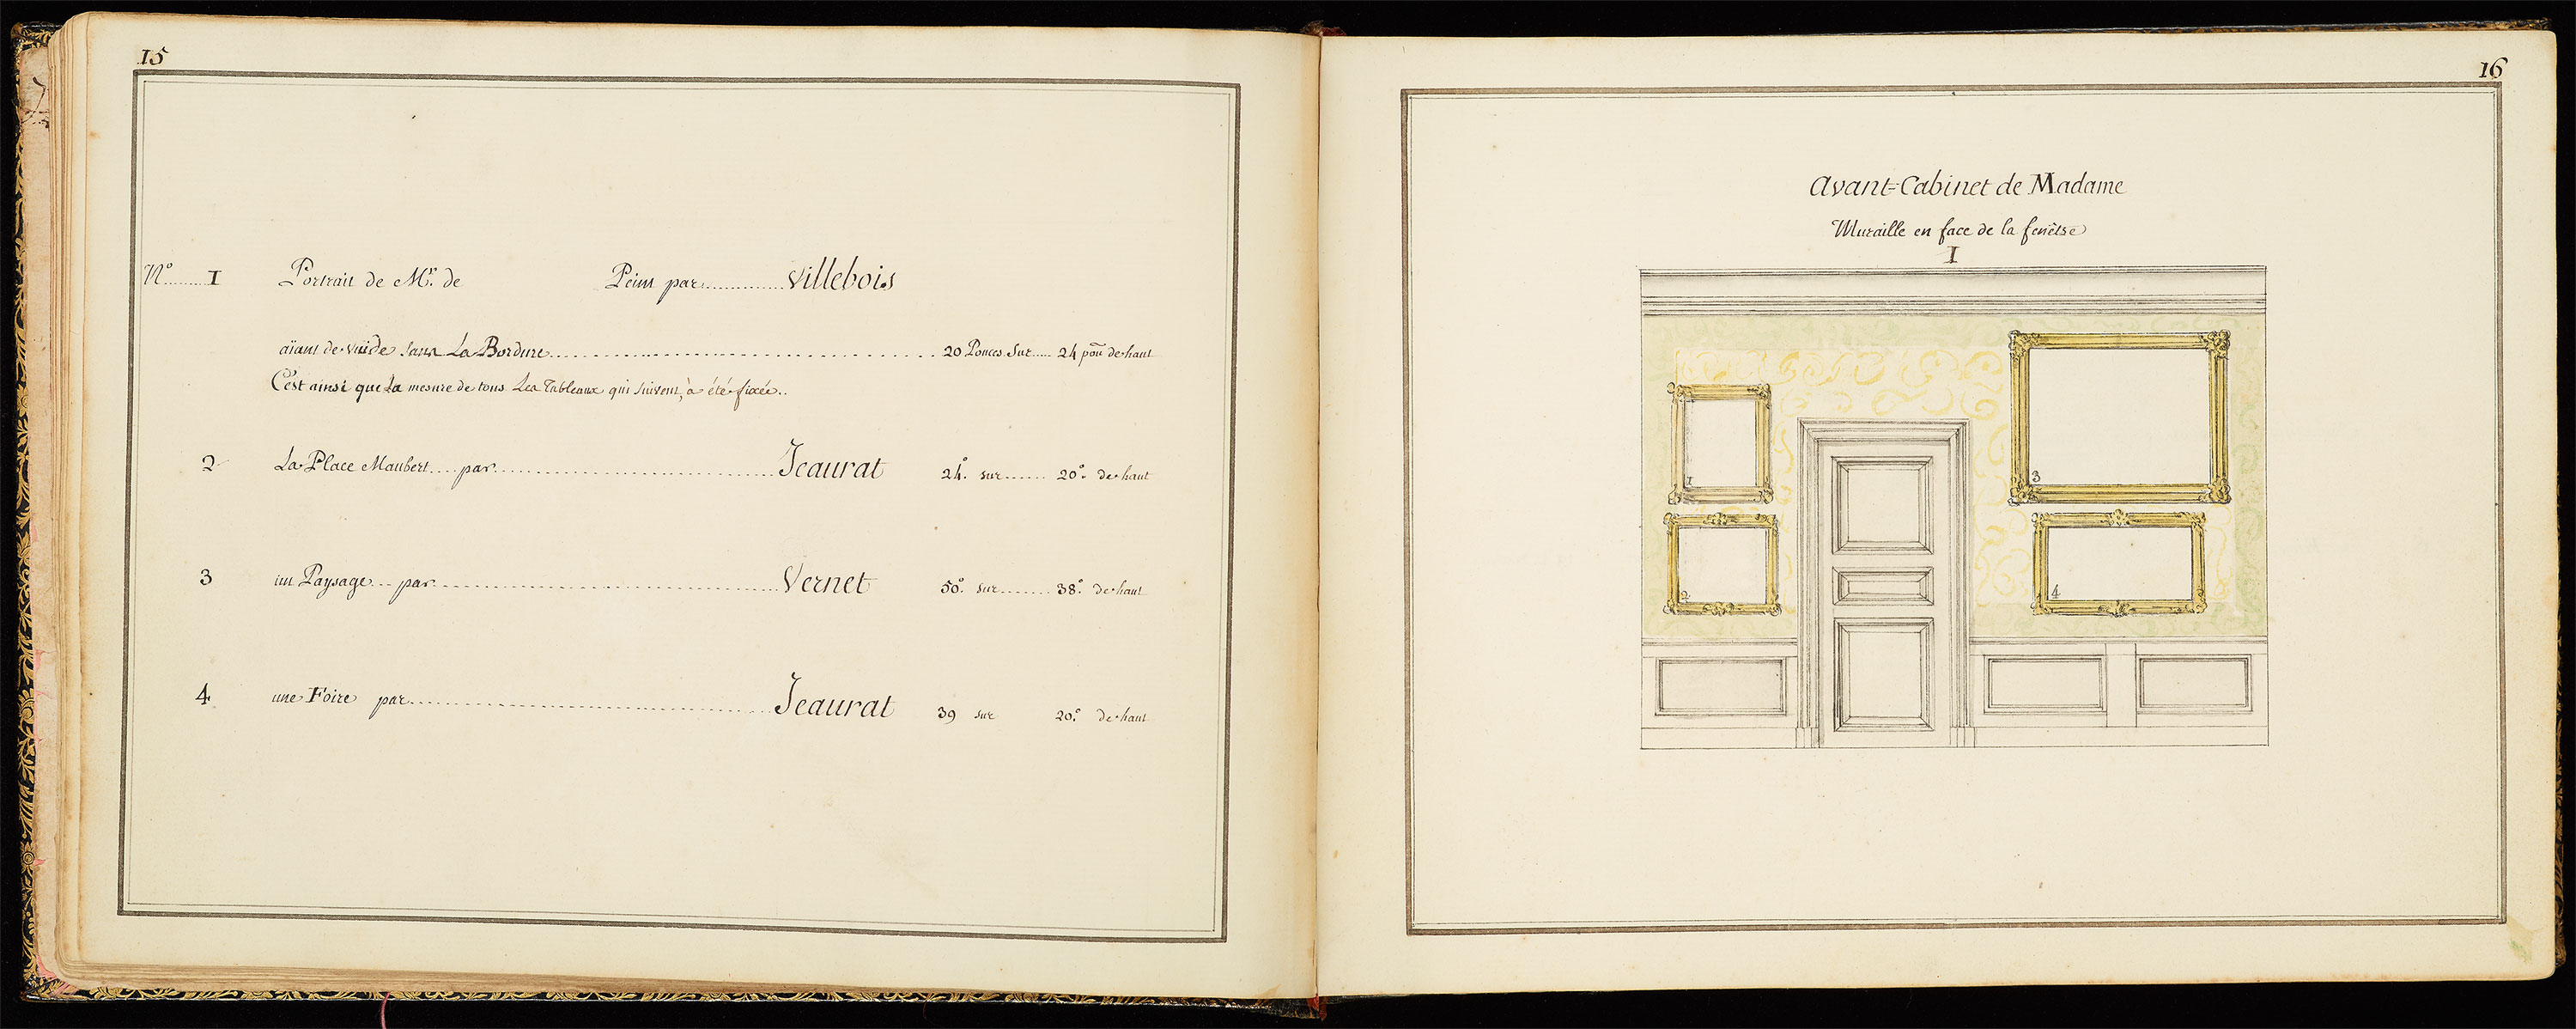 15
N.º........1 Portrait de Mr. de Peint par..............Villebois
aïant de vuide sans La Bordure........................................20 Pouces Sur..... 24 pou de haut
C'est ainsi que La mesure de tous Les Tableaux qui suivent, à été fixée..
2 La Place Maubert.....par...................................Jeaurat 24º. sur....... 20º. de haut
3 un Paysage....par............................................Vernet 50º. sur........ 38º. de haut
4 une Foire par..............................................Jeaurat 39 sur 20.º de haut
16
Avant=Cabinet de Madame
Muraille en face de la fenêtre
I
1
2
3
4